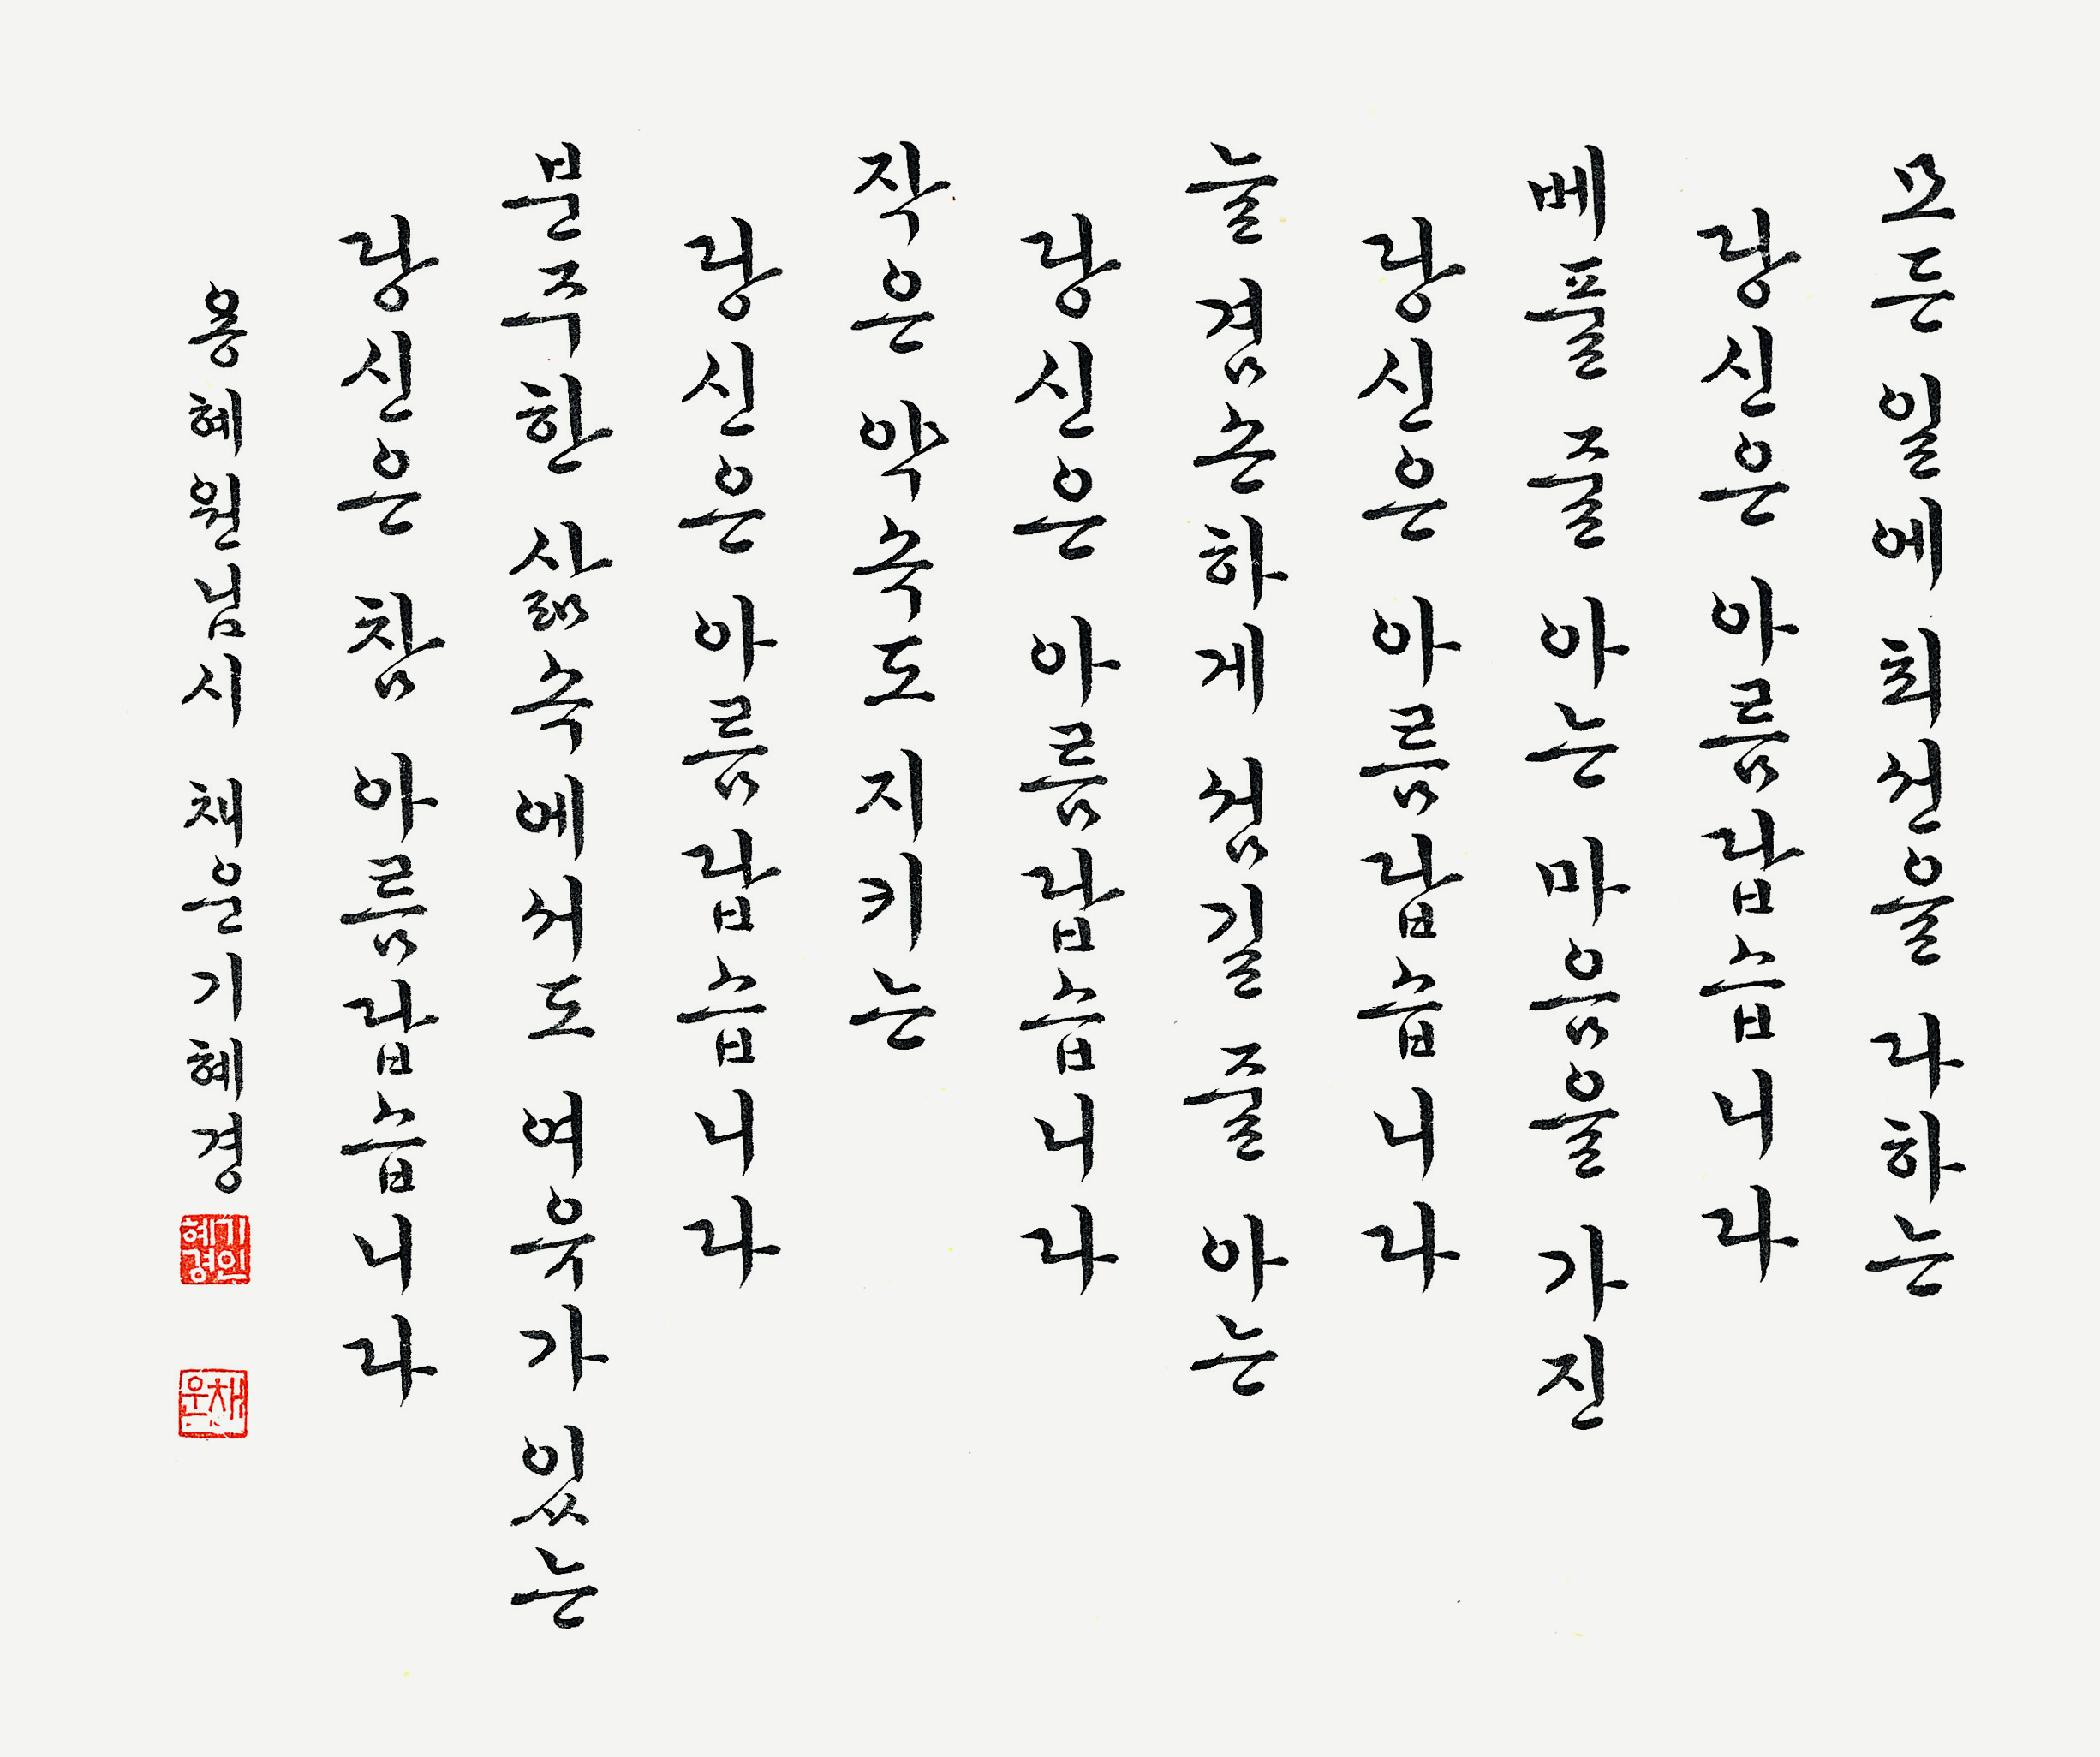 모든 일에 최선을 다하는
당신은 아름답습니다
베풀 줄 아는 마음을 가진
당신은 아름답습니다
늘 겸손하게 섬길 줄 아는
당신은 아름답습니다
작은 약속도 지키는
당신은 아름답습니다
분주한 삶속에서도 여유가 있는
당신은 참 아름답습니다
용혜원님시 채운기혜경
기인혜경
채운